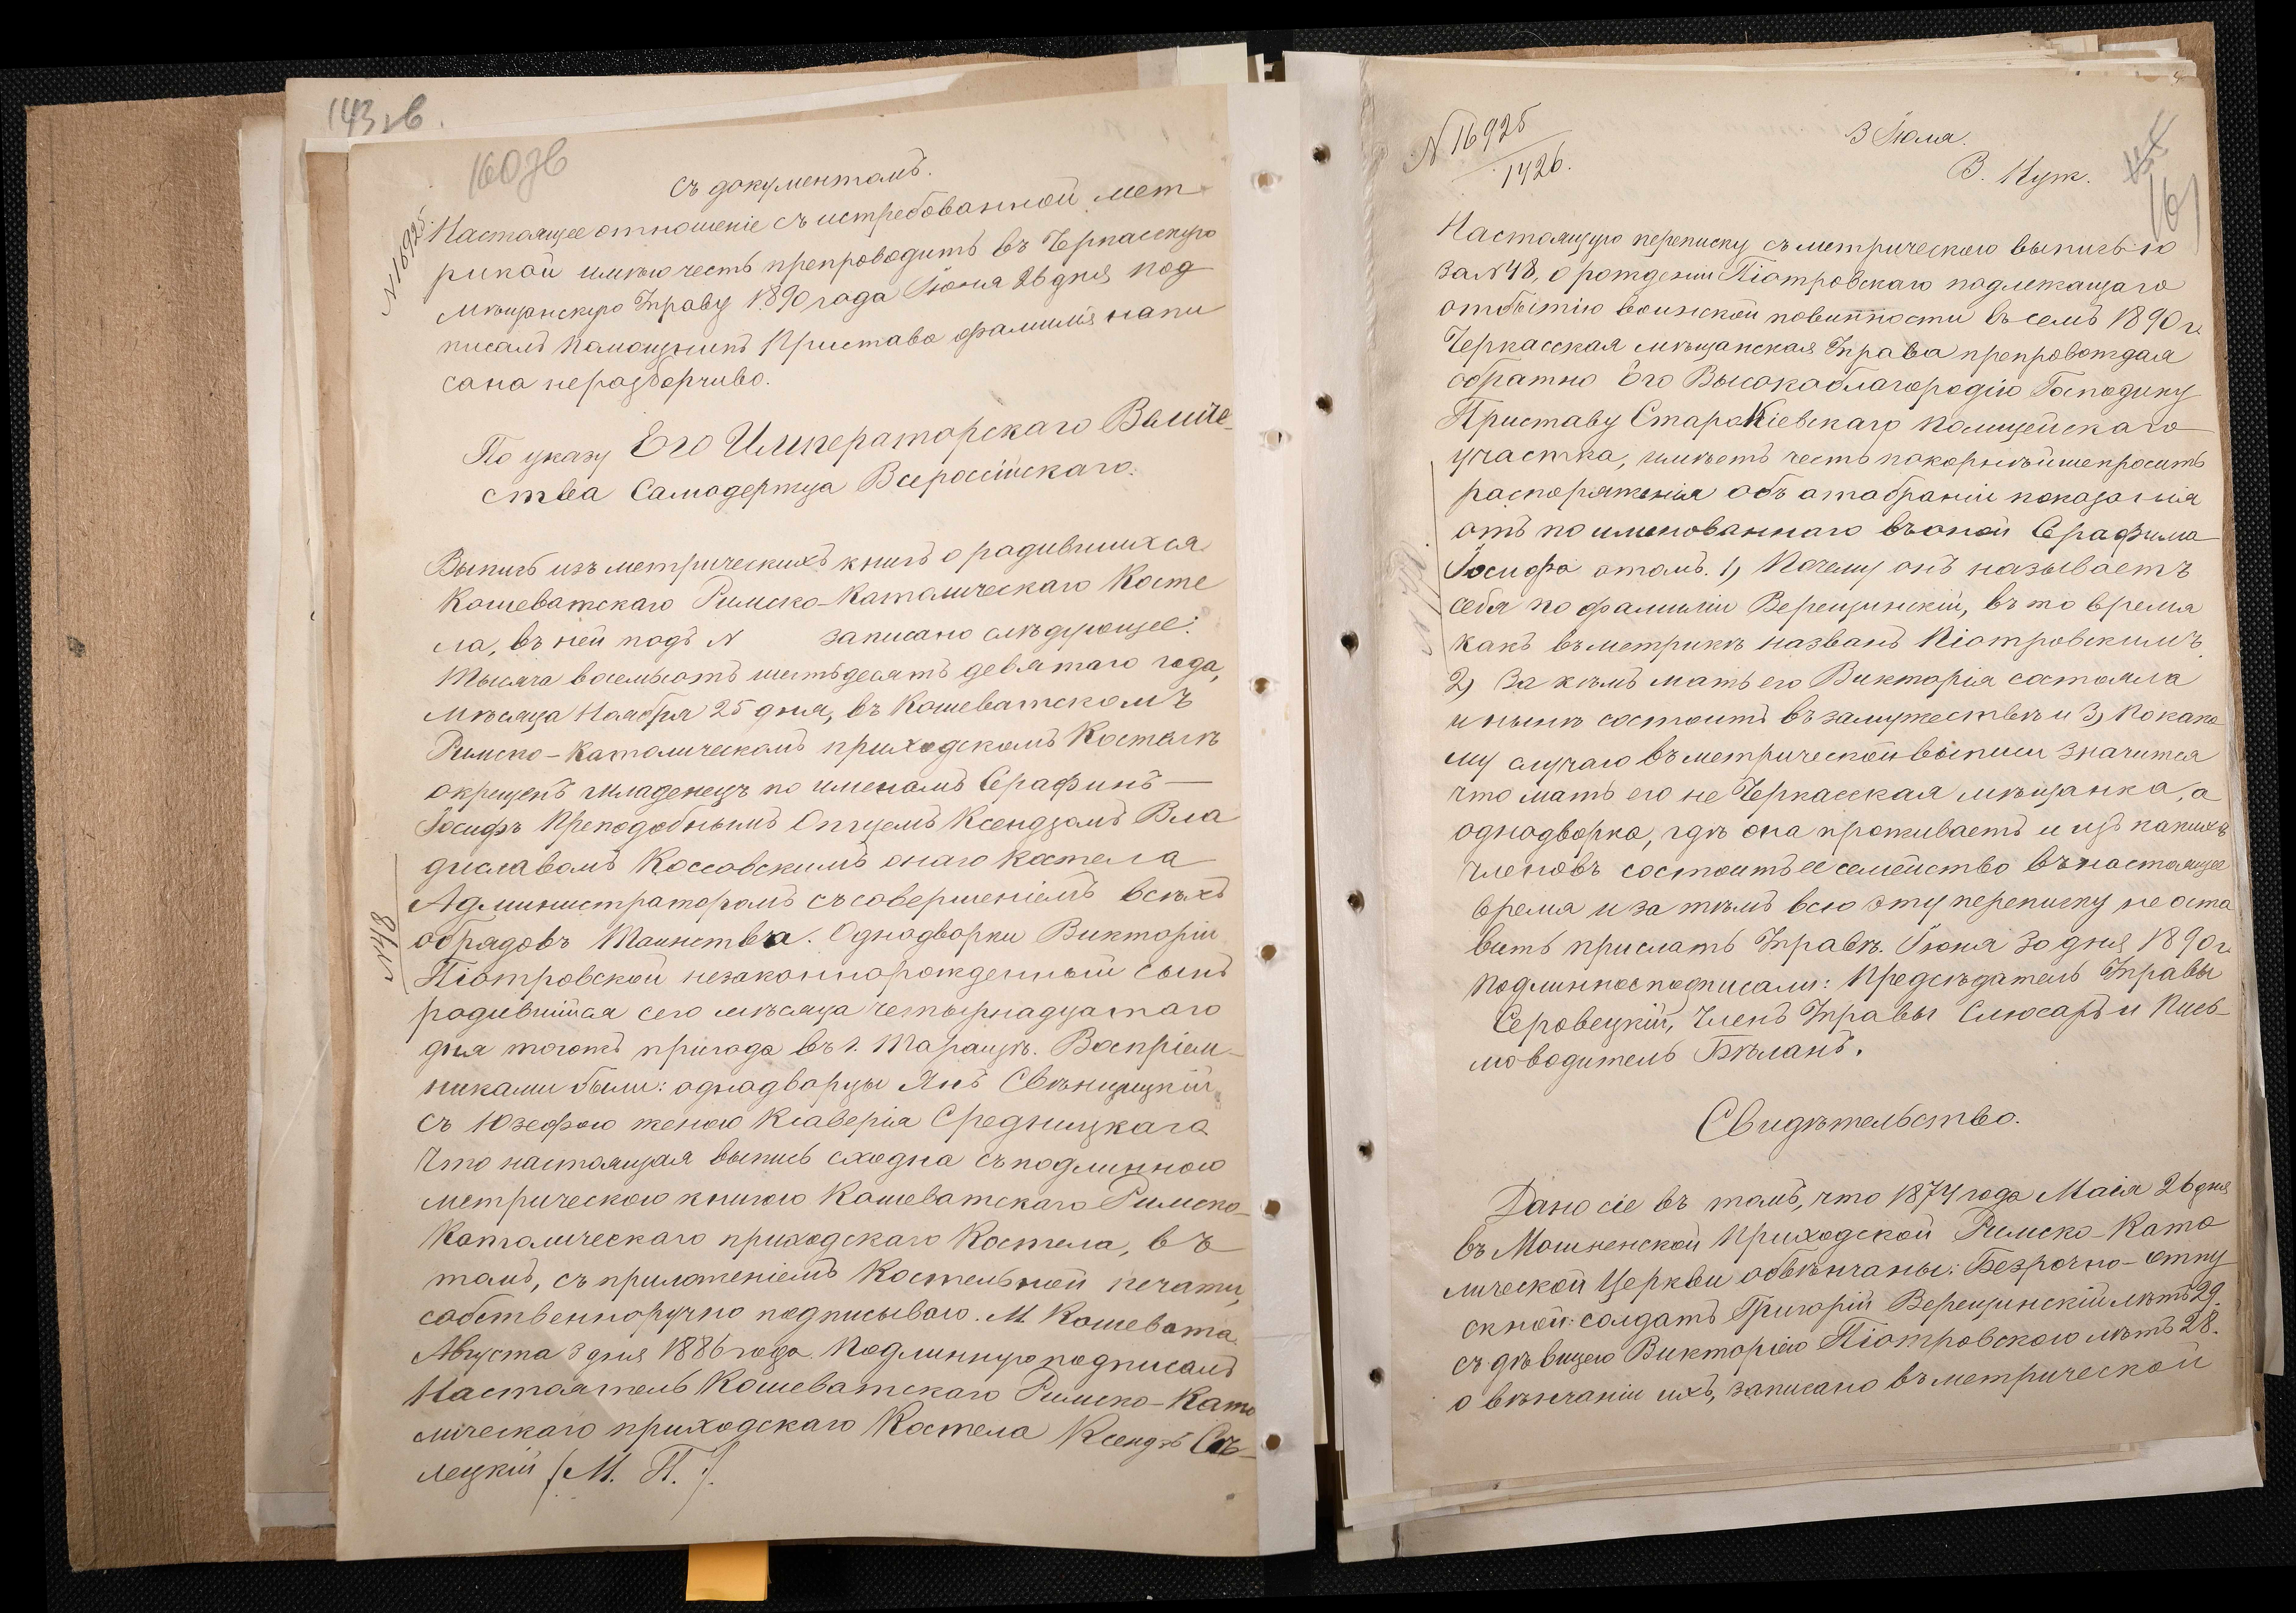 143 зв.
160 зв
съ документомъ.
№ 16925.
Настоящее отношеніе съ истребованной мет-
рикой имѣю честь препроводить въ Черкасскую
мѣщанскую Управу 1890 года Іюня 26 дня под
писалъ Помощникъ Пристава фамилія напи
сана неразборчиво.
По указу Его Императорскаго Величе-
ства Самодержца Всероссійскаго.
Выпись изъ метрическихъ книгъ о родившихся
Кошеватскаго Римско-Католическаго Косте
ла, въ ней подъ № записано слѣдующее:
Тысяча восемьсотъ шестьдесятъ девятаго года,
мѣсяца Ноября 25 дня, въ Кошеватскомъ
Римско-Католическомъ приходскомъ Костелѣ
окрещенъ младенецъ по именамъ Серафинъ-
Іосифъ Преподобнымъ Отцемъ Ксендзомъ Вла
диславомъ Коссовскимъ онаго Костела
Администраторомъ съ совершеніемъ всѣхъ
№ 48
обрядовъ Таинства. Однодворки Викторіи
Піотровской незаконнорожденный сынъ
родившійся сего мѣсяца четырнадцатаго
дня тогожъ пригода въ г. Таращѣ. Воспріем-
никами были: однодворцы Янъ Свѣнцицкій
съ Юзефою женою Ксаверія Средницкаго
Что настоящая выпись сходна съ подлинною
метрическою книгою Кошеватскаго Римско-
Католическаго приходскаго Костела, въ
томъ, съ приложеніемъ Костельной печати,
собственноручно подписываю. М. Кошевата
Августа 3 дня 1886 года. Подлинную подписалъ
Настоятель Кошеватскаго Римско-Като
лическаго приходскаго Костела Ксендзъ Сѣ-
лецкій (М. П.)
№ 16925
1426.
3 Іюля.
В. Пут.
161
Настоящую переписку съ метрическою выписью
за № 48, о рожденіи Піотровскаго подлежащаго
отбытію воинской повинности въ семъ 1890 г.
Черкасская мѣщанская Управа препровождая
обратно Его Высокоблагородію Господину
Приставу СтароКіевскаго полицейскаго
участка, имѣетъ честь покорнѣйше просить
распоряженія объ отобраніи показанія
отъ поименованнаго въ оной Серафима
Іосифа отомъ. 1) Почему онъ называетъ
себя по фамиліи Верещинскій, въ то время
какъ въ метрикѣ названъ Піотровскимъ
2) За кѣмъ мать его Викторія состояла
и нынѣ состоитъ въ замужествѣ и 3) По како
му случаю въ метрической выписи значится
что мать его не Черкасская мѣщанка, а
однодворка, гдѣ она проживаетъ и изъ какихъ
членовъ состоитъ ее семейство въ настоящее
время и за тѣмъ всю эту переписку не оста
вить прислать Управѣ. Іюня 30 дня 1890 г.
Подлинное подписали: Предсѣдатель Управы
Серовецкій, Членъ Управы Слюсарь и Пись-
моводитель Бѣланъ.
Свидѣтельство.
Дано сіе въ томъ, что 1874 года Маія 26 дня
въ Мошненской Приходской Римско-Като
лической Церкви обвѣнчаны: Безрочно-отпу
скной: солдатъ Григорій Верещинскій лѣтъ 29.
съ дѣвицею Викторіею Піотровскою лѣтъ 28.
о вѣнчаніи ихъ, записано въ метрической